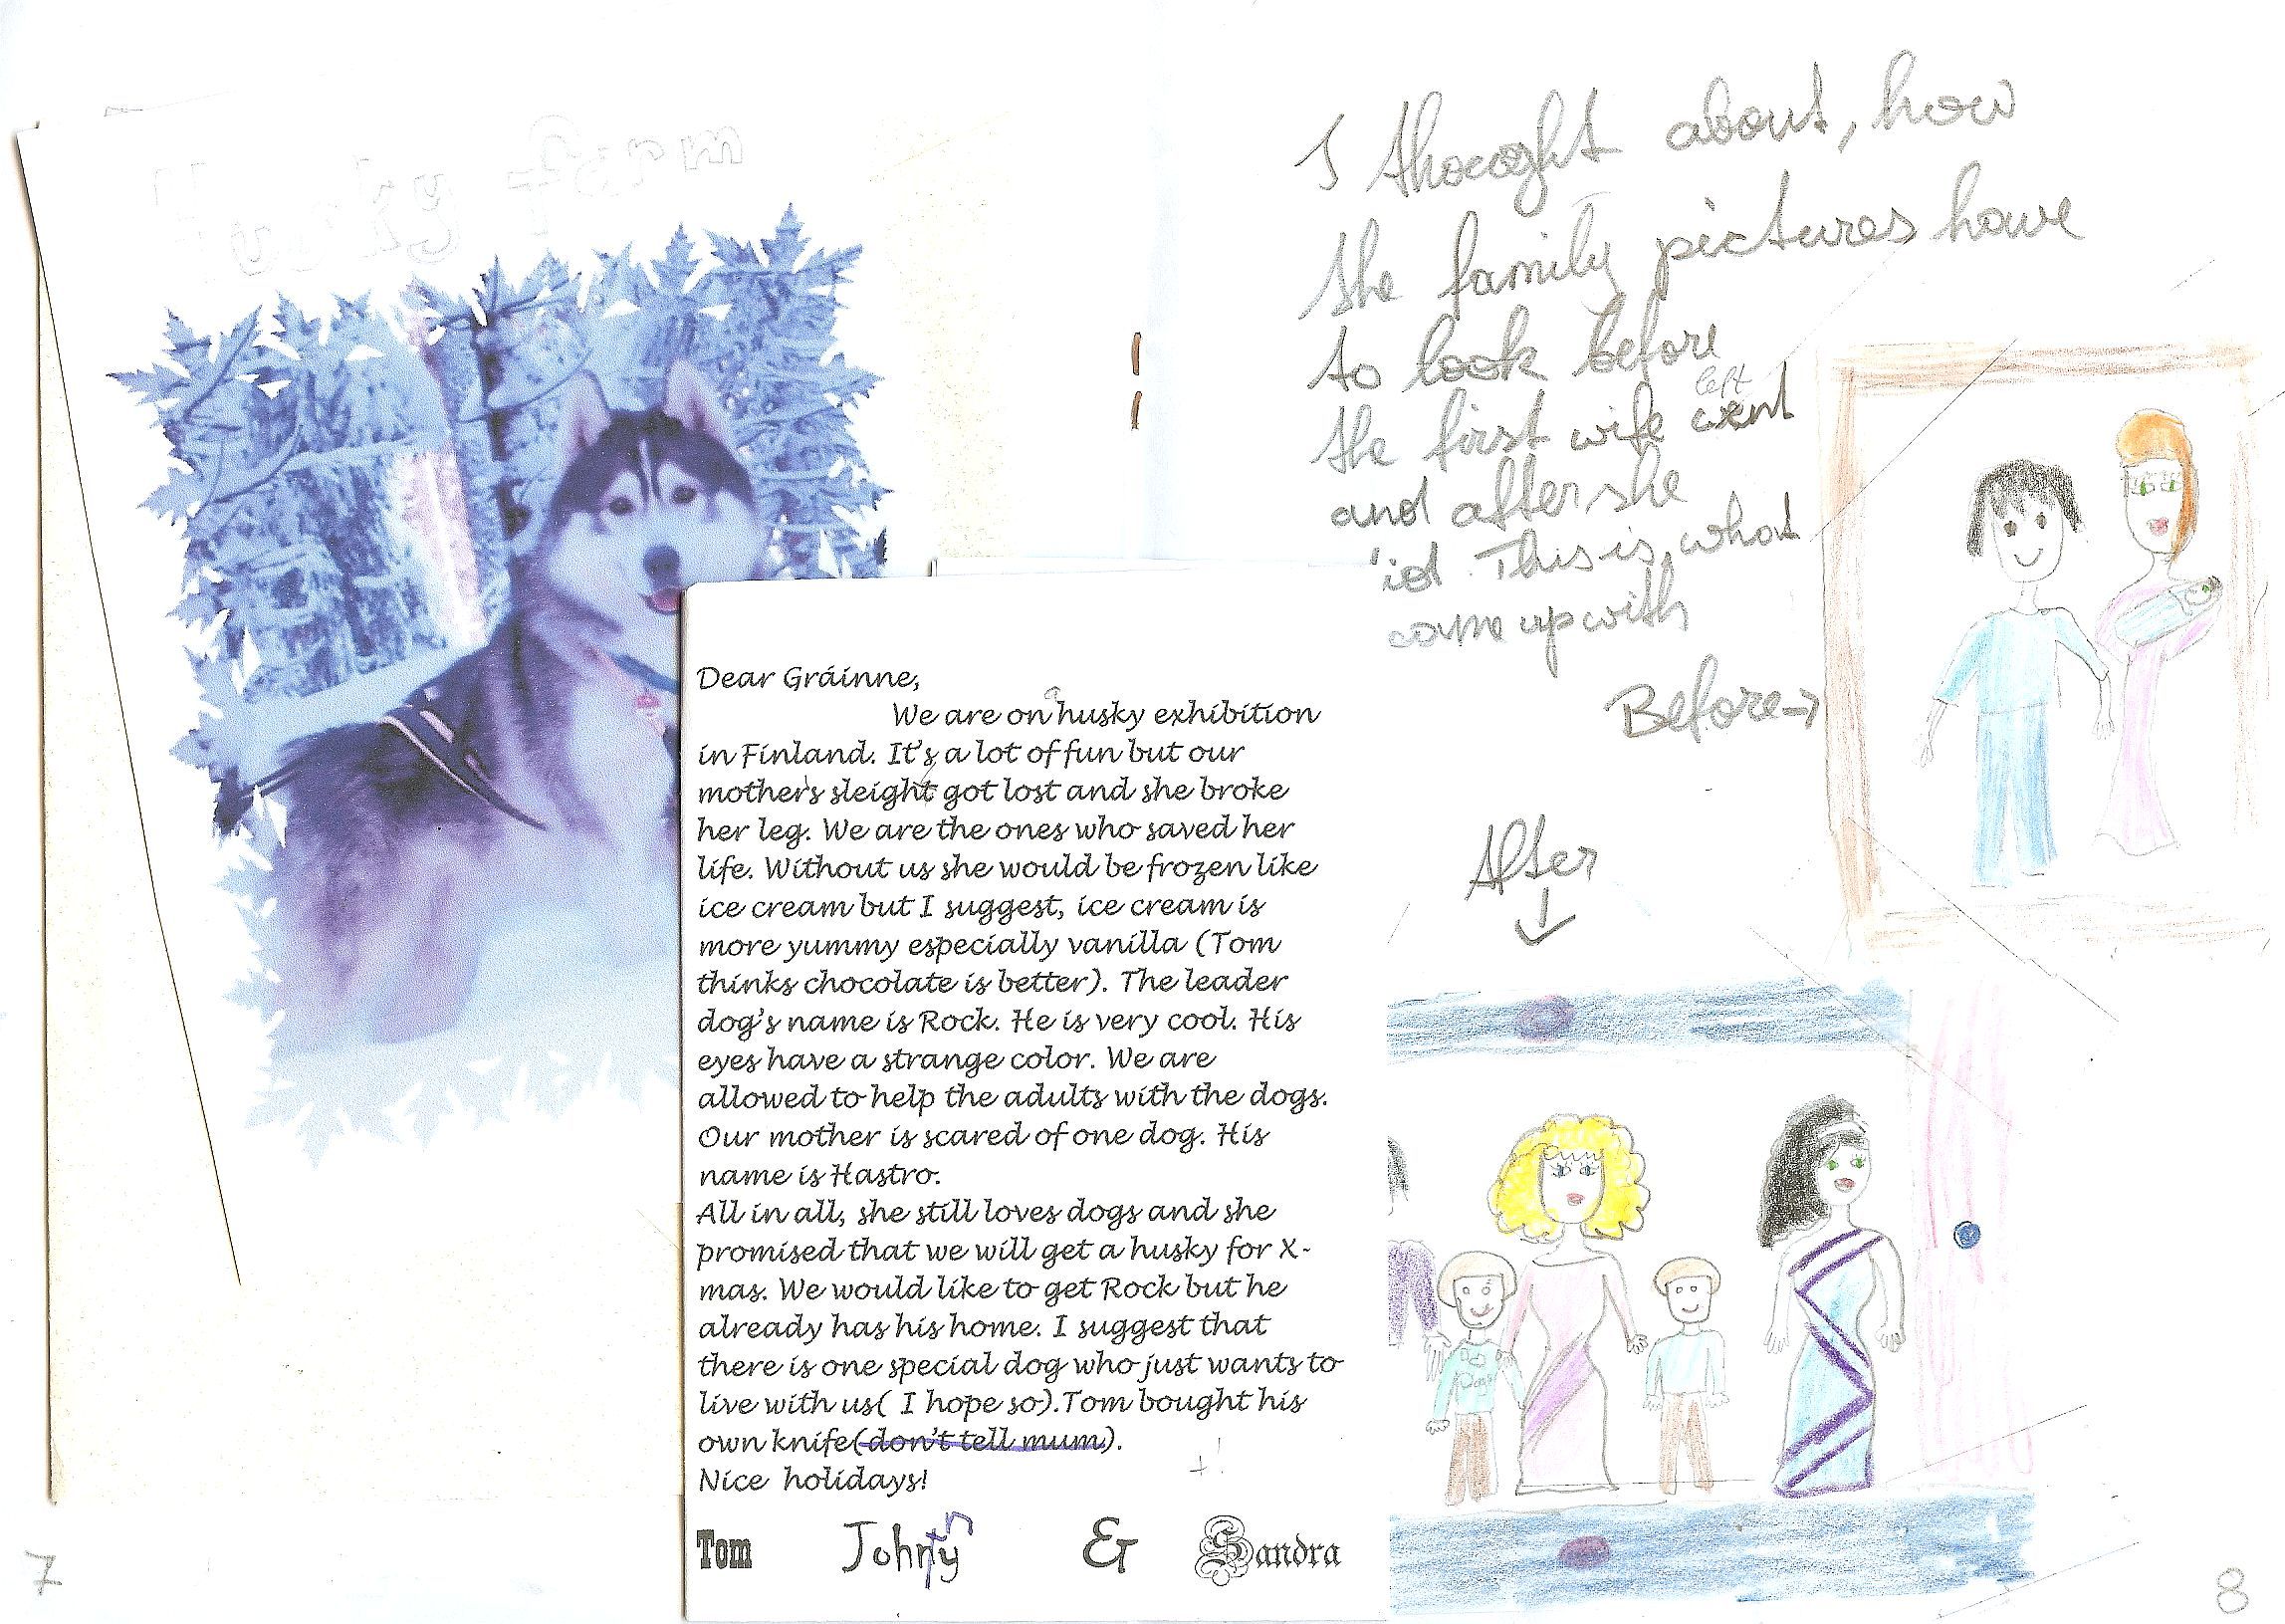 Husky farm
Dear Gráinne,
We are on a husky exhibition
in Finland. It's a lot of fun but our
mother's sleight got lost and she broke
her leg. We are the ones who saved her
life. Without us she would be frozen like
ice cream but I suggest, ice cream is
more yummy especially vanilla (Tom
thinks chocolate is better). The leader
dog's name is Rock. He is very cool. His
eyes have a strange color. We are
allowed to help the adults with the dogs.
Our mother is scared of one dog. His
name is Hastro.
All in all, she still loves dogs and she
promised that we will get a husky for X-
mas. We would like to get Rock but he
already has his home. I suggest that
there is one special dog who just wants to
live with us( I hope so).Tom bought his
own knife(don't tell mum).
Nice holidays!
Tom Johnny & Sandra
7
I thought about, how
the family pictures have
to look before
left
the first wife went
and after she
'id. This is, what
came up with
Before→
After
↓
8